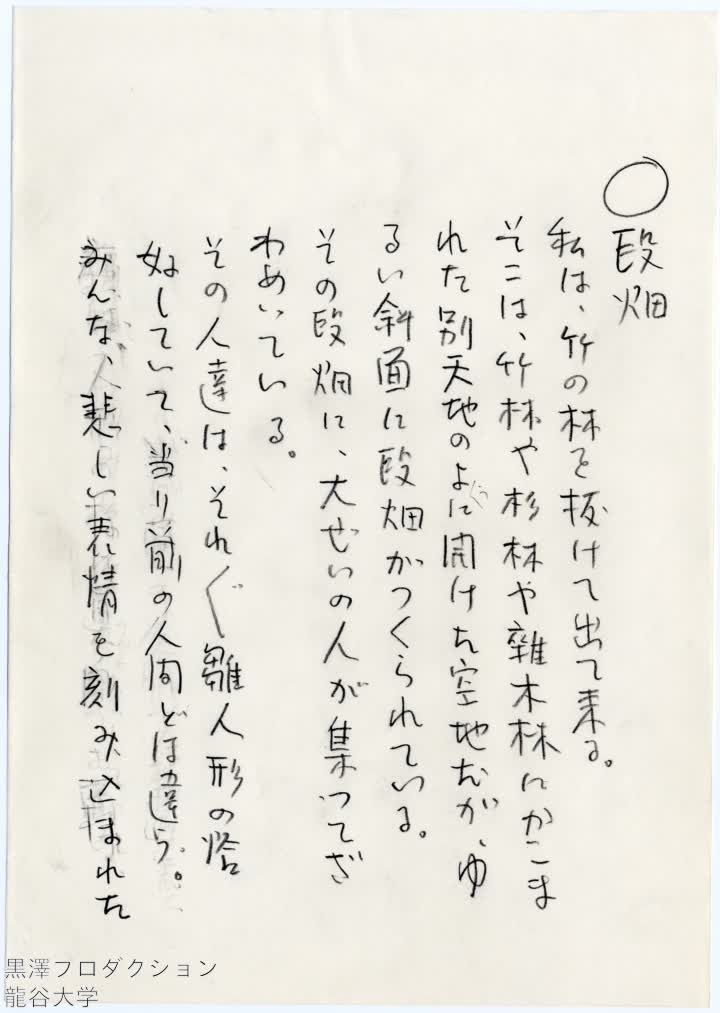 ○段畑
私は、竹の林を抜けて出て来る。
そこは、竹林や杉林や雑木林にかこま
れた別天地のように開けた空地だが、ゆ
るい斜面に段畑がつくられている。
その段畑に、大ぜいの人が集ってざ
わめいている。
その人達は、それ〲雛人形の恰
好していて、当り前の人間とは違う。
みんな、悲しい表情を刻み込まれた
黒澤プロダクション
龍谷大学